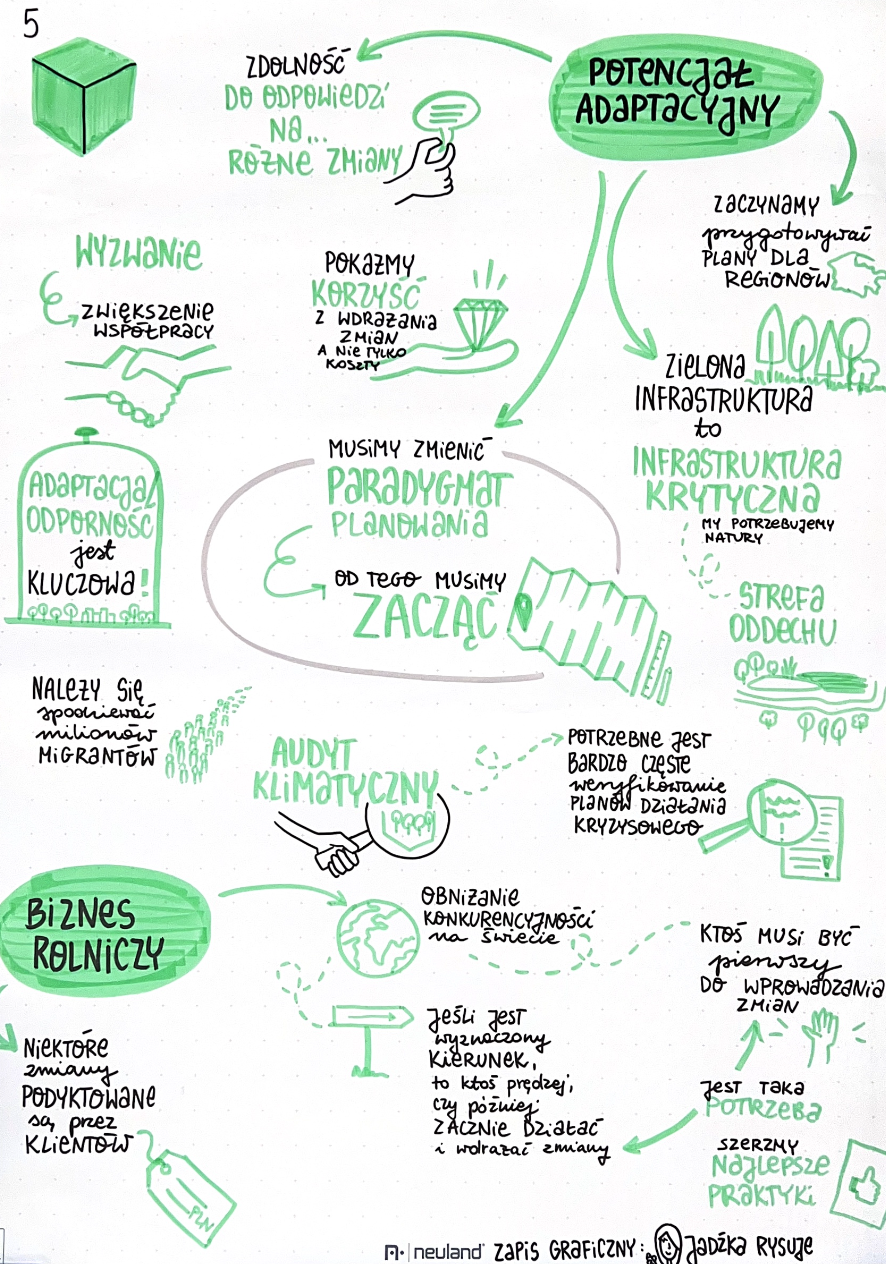 5
POTENCJAŁ
ADAPTACYJNY
ZDOLNOŚĆ
DO ODPOWIEDZI
NA...
RÓŻNE ZMIANY
ZACZYNAMY
przygotowywać
PLANY DLA
REGIONÓW
WYZWANIE
ZWIĘKSZENIE
WSPÓŁPRACY
POKAŻMY
KORZYŚĆ
Z WDRAŻANIA
ZMIAN
A NIE TYLKO
KOSZTY
ZIELONA
INFRASTRUKTURA
to
INFRASTRUKTURA
KRYTYCZNA
MY POTRZEBUJEMY
NATURY
ADAPTACJA/
ODPORNOŚĆ
jest
KLUCZOWA!
MUSIMY ZMIENIĆ
PARADYGMAT
PLANOWANIA
OD TEGO MUSIMY
ZACZĄĆ
STREFA
ODDECHU
NALEŻY SIĘ
spodziewać
milionów
MIGRANTÓW
AUDYT
KLIMATYCZNY
POTRZEBNE JEST
BARDZO CZĘSTE
weryfikowanie
PLANÓW DZIAŁANIA
KRYZYSOWEGO
BIZNES
ROLNICZY
OBNIŻANIE
KONKURENCYJNOŚCI
na świecie
KTOŚ MUSI BYĆ
pierwszy
DO WPROWADZANIA
ZMIAN
NIEKTÓRE
zmiany
PODYKTOWANE
są przez
KLIENTÓW
PLN
JEŚLI JEST
wyznaczony
KIERUNEK,
to ktoś prędzej,
czy później
ZACZNIE DZIAŁAĆ
i wdrażać zmiany
JEST TAKA
POTRZEBA
SZERZMY
NAJLEPSZE
PRAKTYKI
neuland ZAPIS GRAFICZNY: JADŹKA RYSUJE